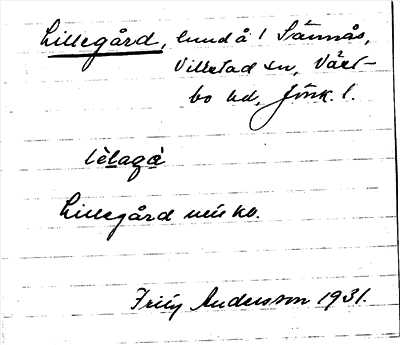 Lillegård, lund å 1 Sännås,
Villstad sn, Väst-
bo hd, Jönk. l.
lèlagà
Lillegård
Fritz Andersson 1931.